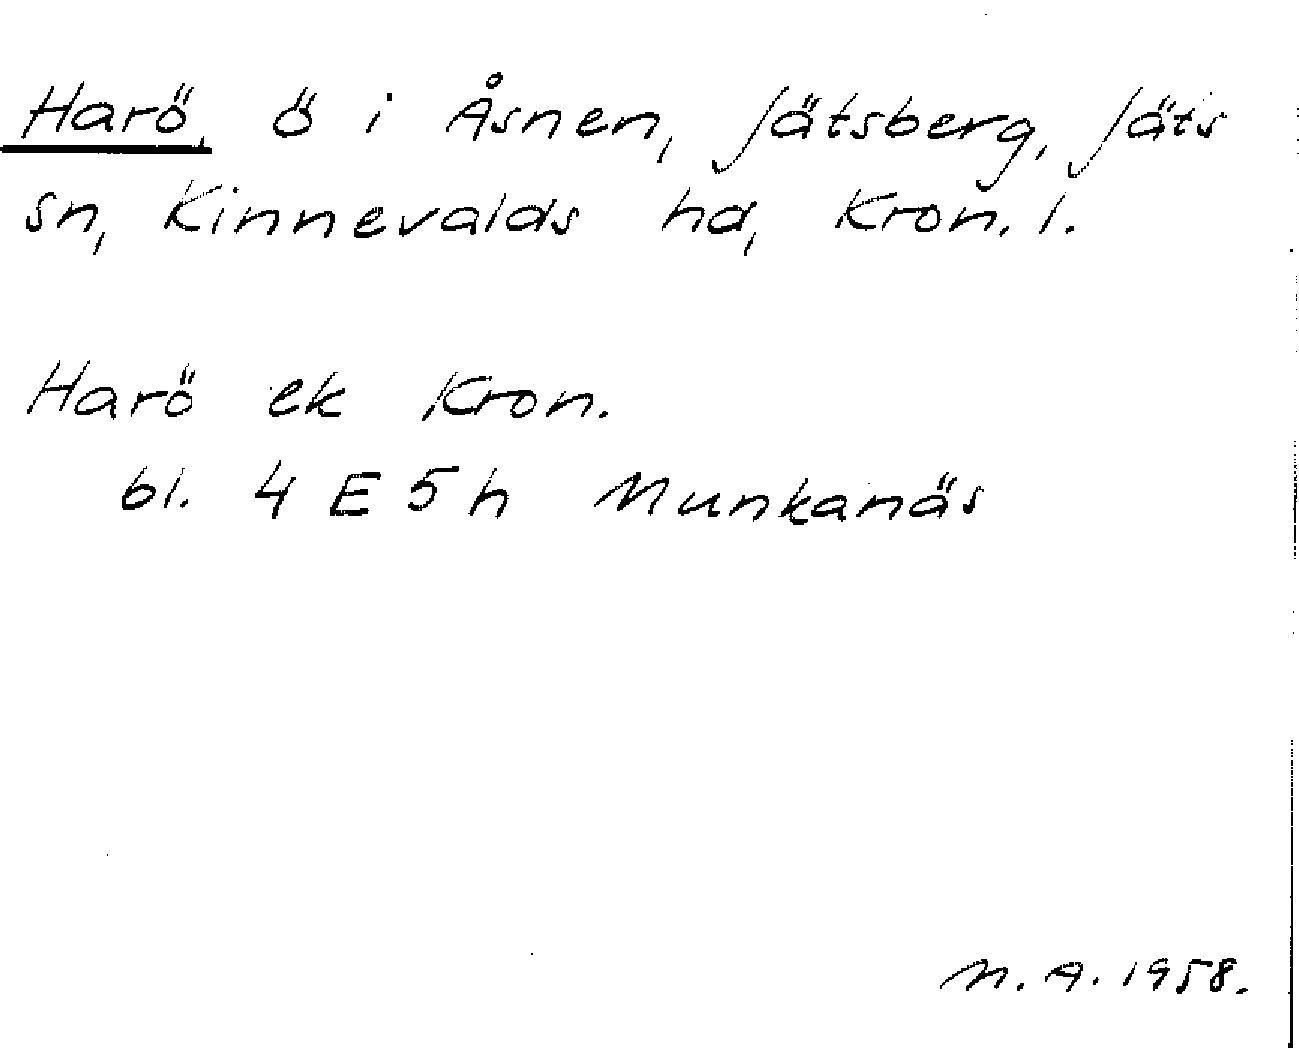 Harö, ö i Åsnen, Jätsberg, Jäts
sn, Kinnevalds hd, Kron. l.
Harö ek Kron.
bl. 4 E 5 h Munkanäs
M. A. 1958.